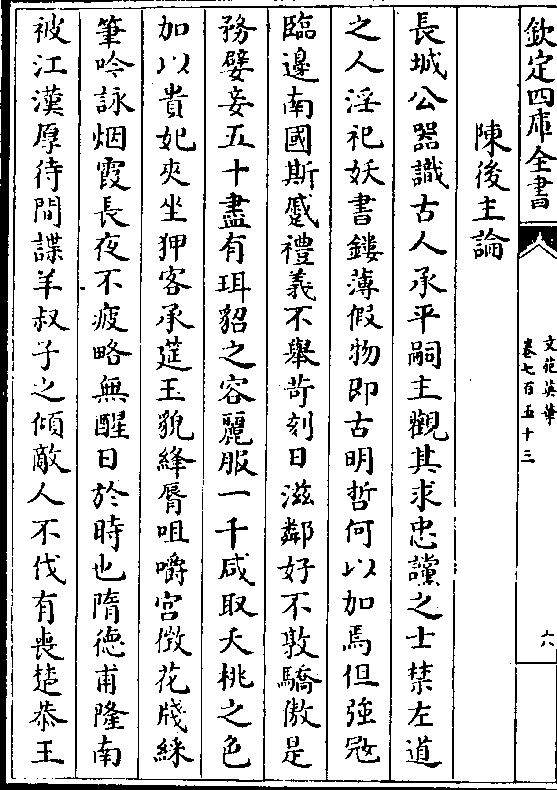 欽定四庫全書
文苑英華
卷七百五十三
六
陳後主論
長城公器識古人承平嗣主觀其求忠讜之士禁左道
之人淫祀妖書鏤薄假物即古明哲何以加焉但強寇
臨邊南國斯蹙禮義不舉苛刻日滋鄰好不敦驕傲是
務嬖妾五十盡有珥貂之容麗服一千咸取夭桃之色
加以貴妃夾坐狎客承莚玉貌絳脣咀嚼宮徴花牋綵
筆吟詠烟霞長夜不疲略無醒日於時也隋德甫隆南
被江漢厚待間諜羊叔子之傾敵人不伐有喪楚恭王